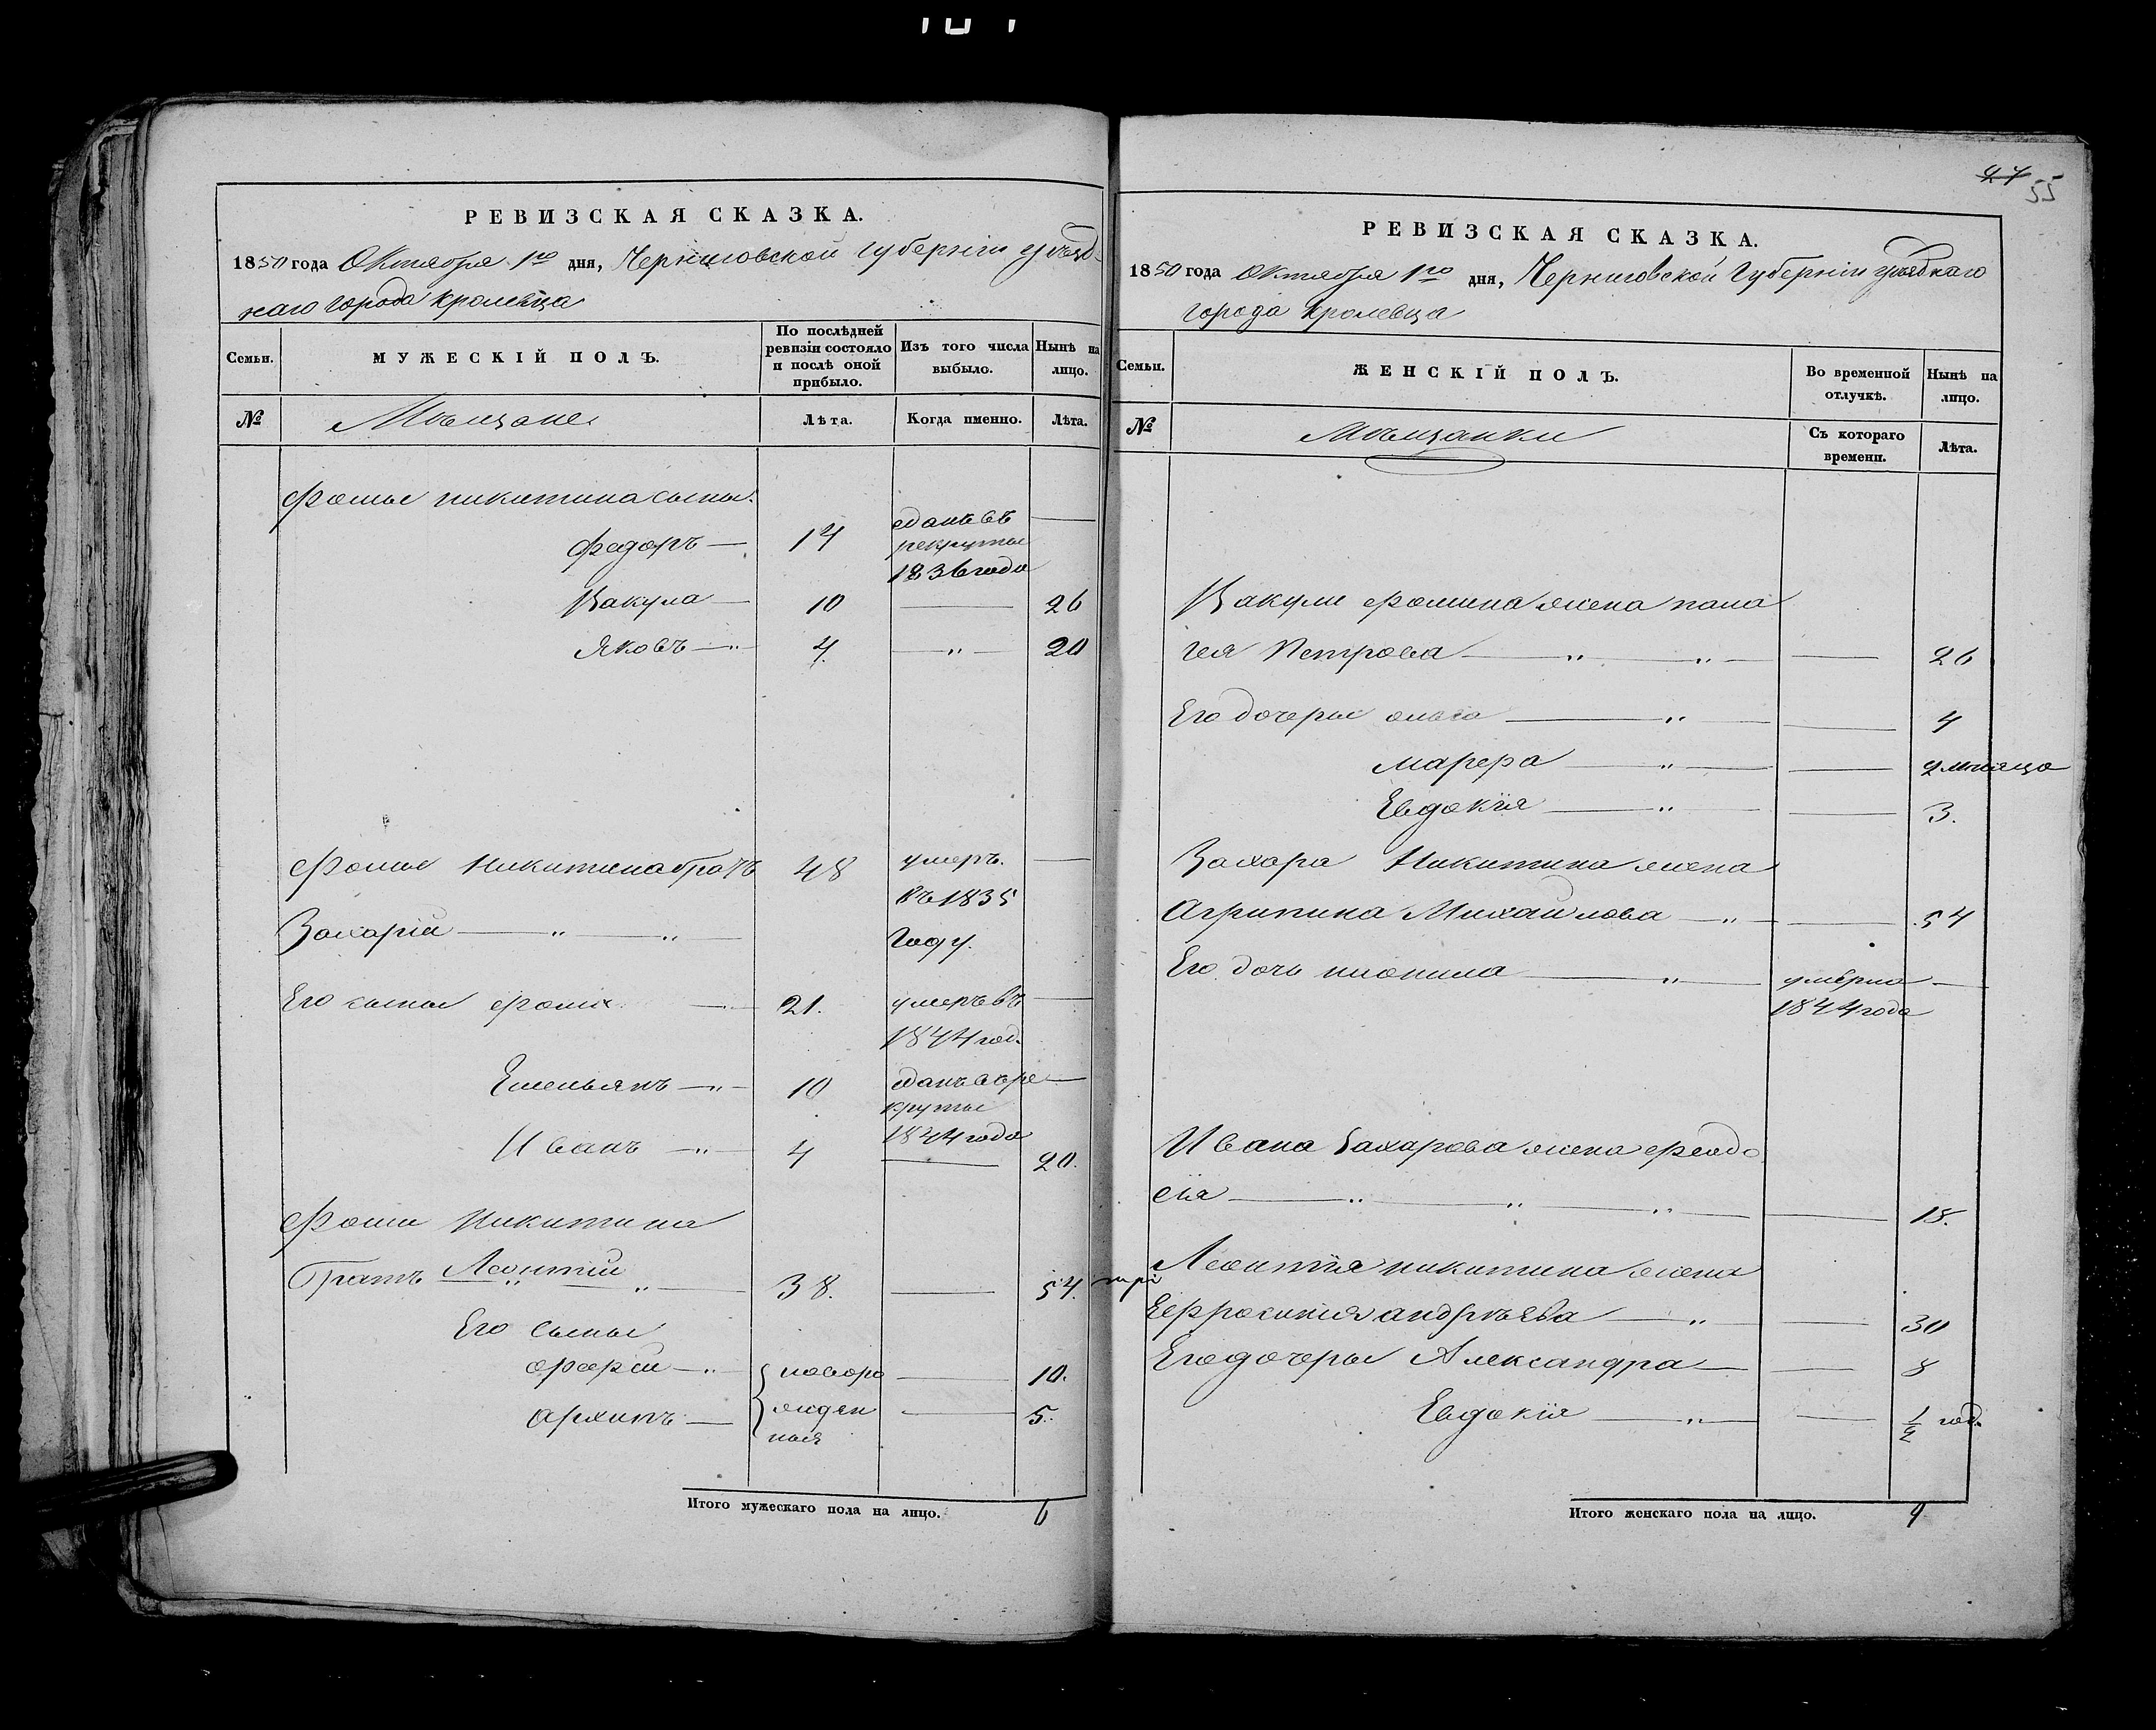 РЕВИЗСКАЯ СКАЗКА.
1850 года Октября 1го дня, Черниговской губерніи уѣзд-
наго города Кролевца
Семьи.
МУЖЕСКІЙ ПОЛЪ.
По послѣдней ревизіи состояло и послѣ оной прибыло.
Изъ того числа выбыло.
Нынѣ на лицо.
№
Мѣщане
Лѣта.
Когда именно.
Лѣта.
Фомы Никитина сыны
Федоръ 14 зданъ въ
рекруты
1836 года
Вакула 10 26
Яковъ 4 20
Фомы Никитина братъ 48 умеръ
въ 1835
Захарій году.
Его сыны Фома 21. умеръ въ
1844 год.
Емельянъ 10 зданъ въ ре
круты
1844 года
Иванъ 4 20.
Фомы Никитина
братъ Леонтій 38. 54.
Его сыны
10.
новоро
Архипъ жден 5.
ныя
Итого мужескаго пола на лицо. 6
27 55
РЕВИЗСКАЯ СКАЗКА.
1850 года Октября 1го дня, Черниговской Губерніи уѣзднаго
города Кролевца
Семьи.
ЖЕНСКІЙ ПОЛЪ.
Во временной отлучкѣ.
Нынѣ на лицо.
№
Мѣщанки
Съ котораго времени.
Лѣта.
Вакулы Фомина жена Пела
гея Петрова 26
Его дочеры Ольга 4
Марфа 2 мѣсяца
Евдокія 3.
Захара Никитина жена
Агрипина Михайлова 54
Его дочь умерла
1844 года
Ивана Захарова жена Феодо
сія 18.
Леонтія Никитина жена
Ефросинія Андрѣева 30
Его дочеры Александра 8
Евдокія 1/2 год.
Итого женскаго пола на лицо. 9